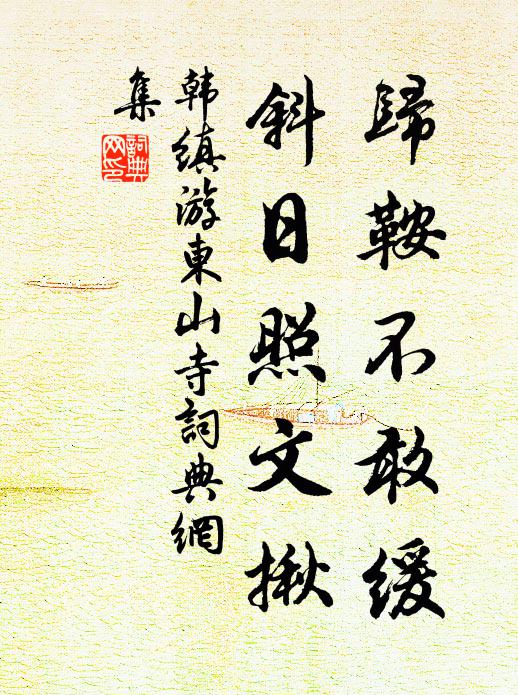 歸鞍不敢緩
斜日照文揪
韩縝游東山寺詞典網
集
詞典
网印